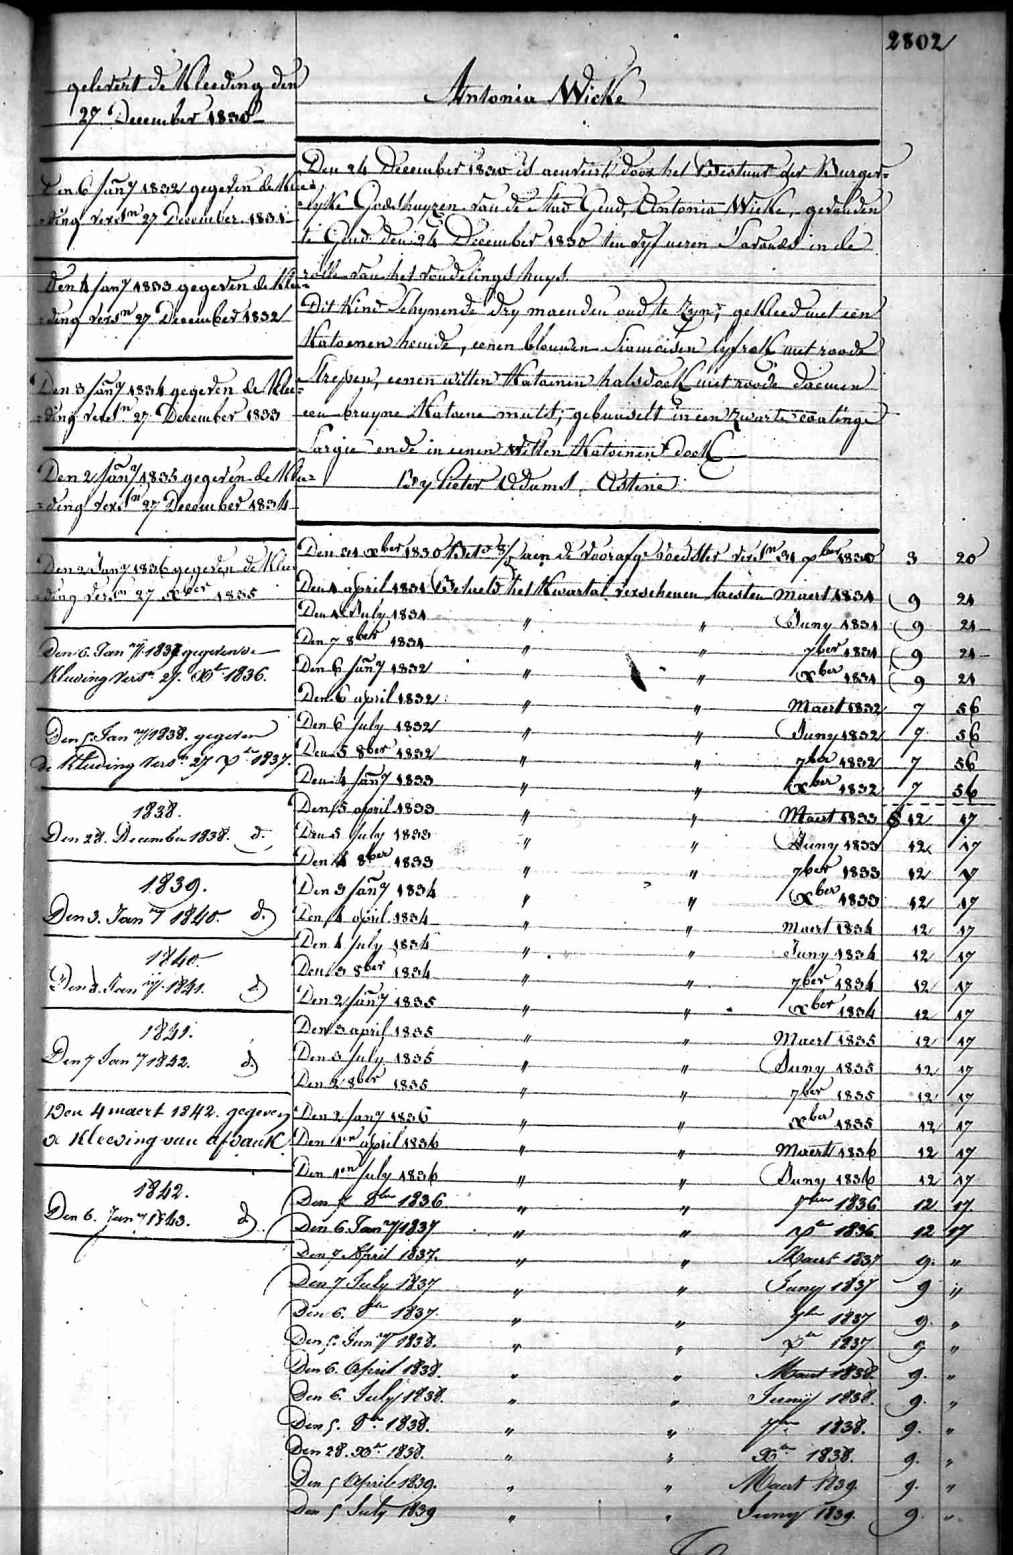 2802
gelevert de Kleeding den
27 December 1830
Antonia Wicke
Den 24 December 1830 is aenveirt door het Bestuur der Burger=
=lyke Godshuyzen van de Stad Gend, Antonia Wicke, gevonden
te Gend den 24 December 1830 ten vyf ueren S'avonds in de
rolle van het vondelings huys.
Dit Kind Schynende dry maenden oud te zyn, gekleed met een
Katoenen hemde, eenen blouwen Siamoisen lyfrok met roode
Strepen, eenen witten Katoenen halsdoek met roode
een bruyne Katoene mutst, gebundelt in een zwarte
Sargie ende in eenen Witten Katoenen doek
By Pieter Adams.
Den 6 Jany 1832 gegeven de Klee=
=ding versn 27 December 1831
Den 4 Jany 1833 gegeven de Klee=
=ding versn 27 December 1832
Den 3 Jany 1834 gegeven de Klee=
=ding versn 27 December 1833
Den 2 Jany 1835 gegeven de Klee=
=ding versn 27 December 1834
Den 2 Jany 1836 gegeven de Klee
ding versn 27 Xber 1835
Den 6. Jany 1837 gegeven de
Kleeding versn 27. Xr 1836.
Den 5. Jany 1838. gegeven
de Kleeding versn 27 Xr 1837.
1838.
Den 28. December 1838. d.
1839.
Den 3. Jany 1840. d.
1840.
Den 8. Jany 1841. d
1841.
Den 7 Jany 1842. d.
Den 4 maert 1842. gegeven
de Kleeding van afdank
1842.
Den 6. Jany 1843. d.
Den 31 Xber 1830 aen de voorafge voedster versn 31 Xber 1830 3 20
Den 4 april 1831 Betaelt het Kwartal verschenen laesten Maert 1831 9 24
Den 4 July 1831 " " Juny 1831 9 24
Den 7 8ber 1831 " " 7ber 1831 9 24
Den 6 Jany 1832 " " Xber 1831 9 24
Den 6 april 1832 " " Maert 1832 7 56
Den 6 July 1832 " " Juny 1832 7 56
Den 5 8ber 1832 " " 7ber 1832 7 56
Den 4 Jany 1833 " " Xber 1832 7 56
Den 5 april 1833 " " Maert 1833 12 17
Den 5 July 1833 " " Juny 1833 12 17
Den 4 8ber 1833 " " 7ber 1833 12 17
Den 3 Jany 1834 " " Xber 1833 12 17
Den 4 april 1834 " " Maert 1834 12 17
Den 4 July 1834 " " Juny 1834 12 17
Den 3 8ber 1834 " " 7ber 1834 12 17
Den 2 Jany 1835 " " Xber 1834 12 17
Den 3 april 1835 " " Maert 1835 12 17
Den 3 July 1835 " " Juny 1835 12 17
Den 2 8ber 1835 " " 7ber 1835 12 17
Den 2 Jany 1836 " " Xber 1835 12 17
Den 1en april 1836 " " Maert 1836 12 17
Den 1en July 1836 " " Juny 1836 12 17
Den 7 8ber 1836 " " 7ber 1836 12 17
Den 6. Jany 1837 " " Xr 1836 12 17
Den 7 April 1837. " " Maert 1837 9. "
Den 7 July 1837 " " Juny 1837 9 "
Den 6. 8ber 1837. " " 7ber 1837 9. "
Den 5. Jany 1838. " " Xr 1837 9 "
Den 6. April 1838. " " Maert 1838. 9. "
Den 6. July 1838. " " Juny 1838. 9. "
Den 5. 8r 1838. " " 7r 1838. 9. "
Den 28. Xr 1838. " " Xr 1838. 9. "
Den 5 April 1839. " " Maert 1839. 9. "
Den 5 July 1839 " " Juny 1839. 9. "